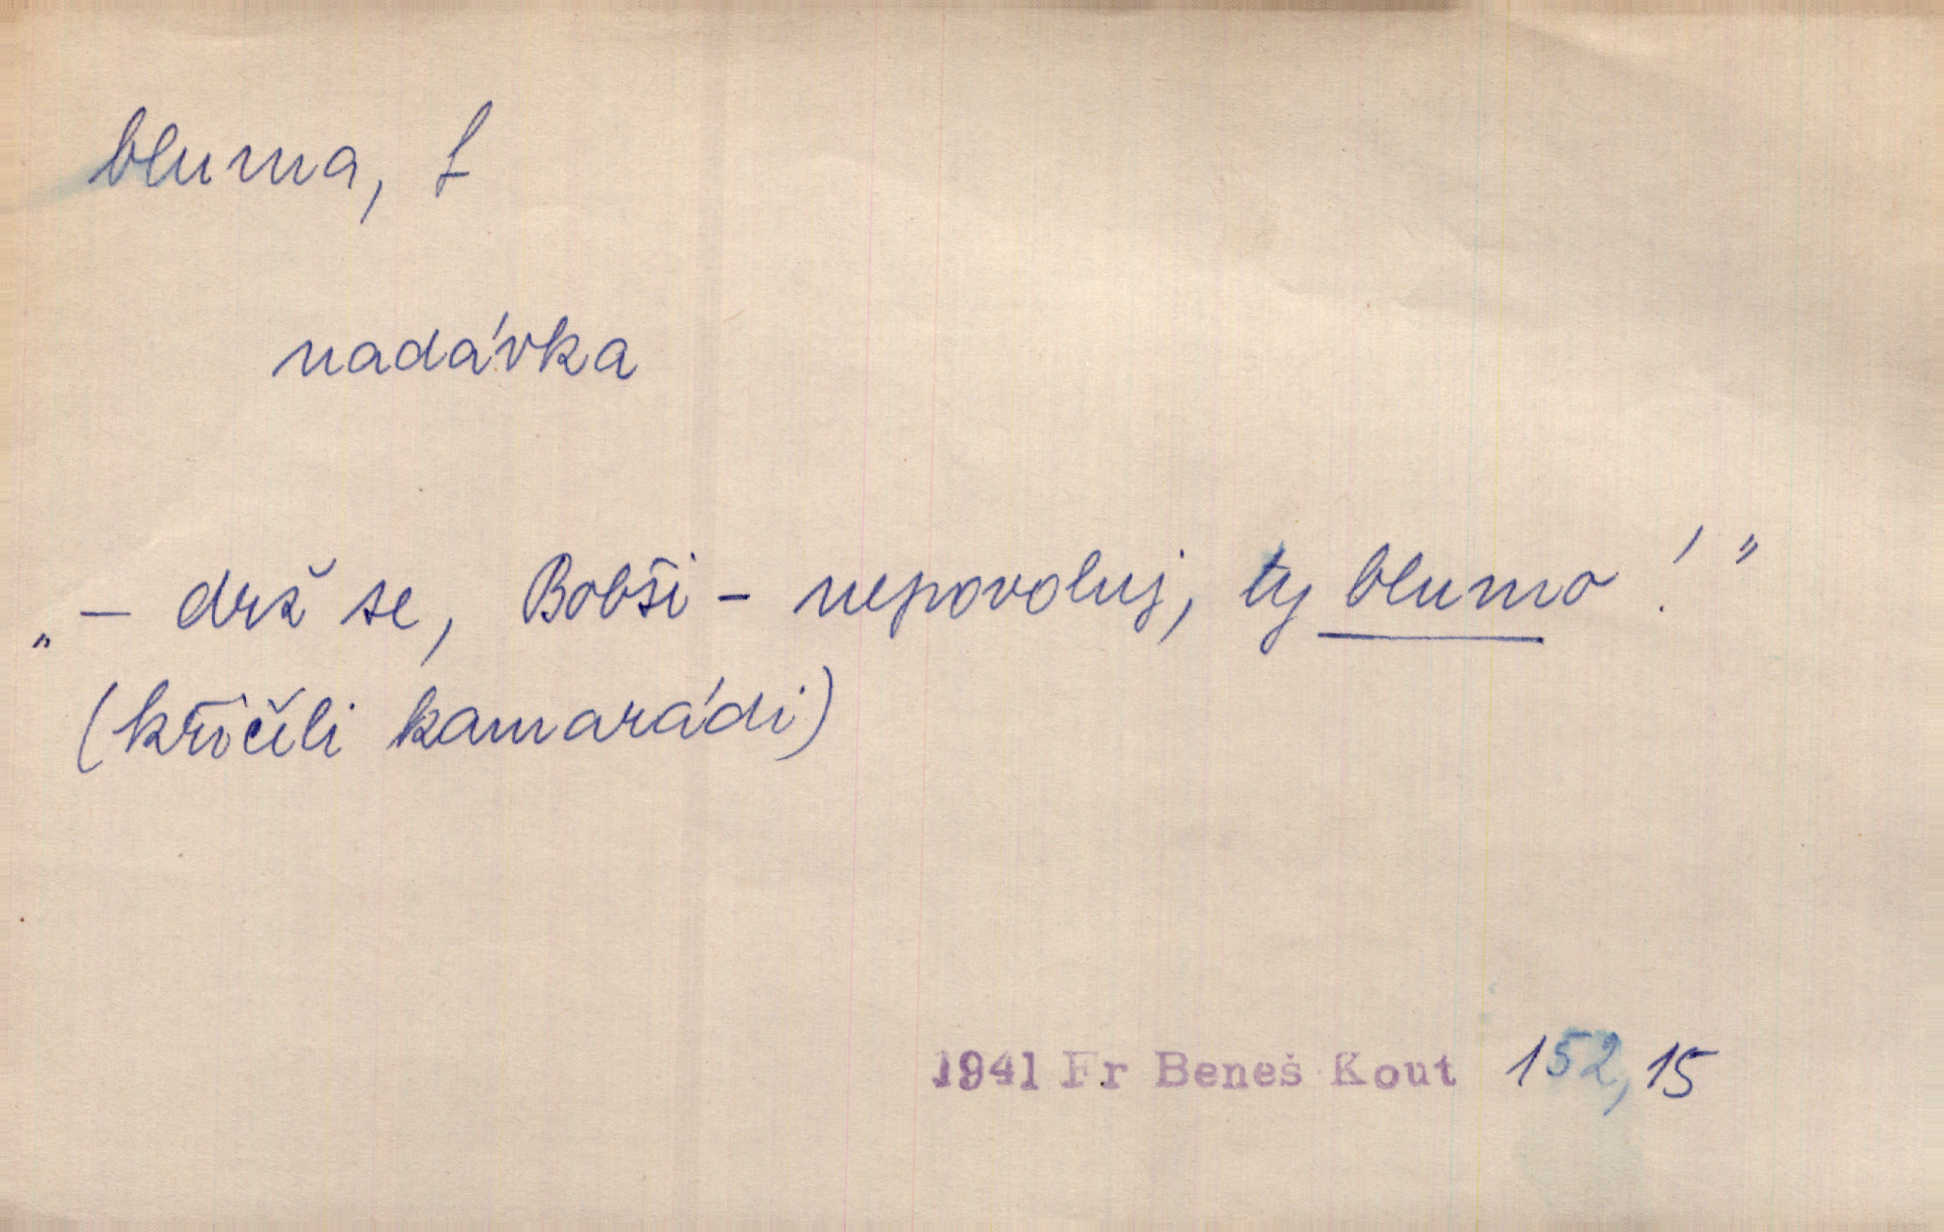 bluma, f
nadávka
„— drž se, Bobši - nepovoluj, ty blumo!"
(křičili kamarádi)
1941 Fr Beneš Kout 152,15